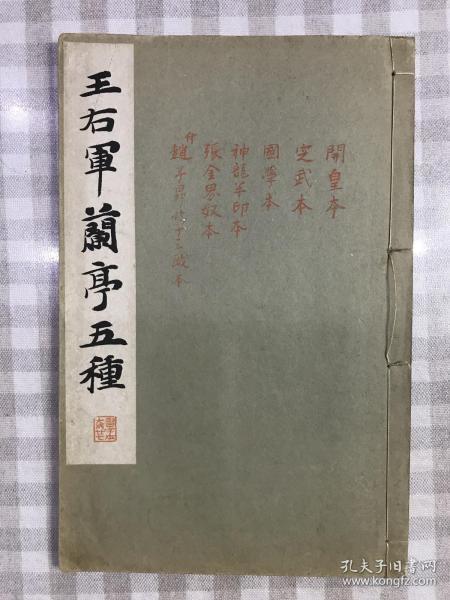 王右軍蘭亭五種
開皇本
定武本
國學本
神龍半印本
張金界奴本
付
趙子昂
十三跋本
孔夫子旧书网
www.kongfz.com